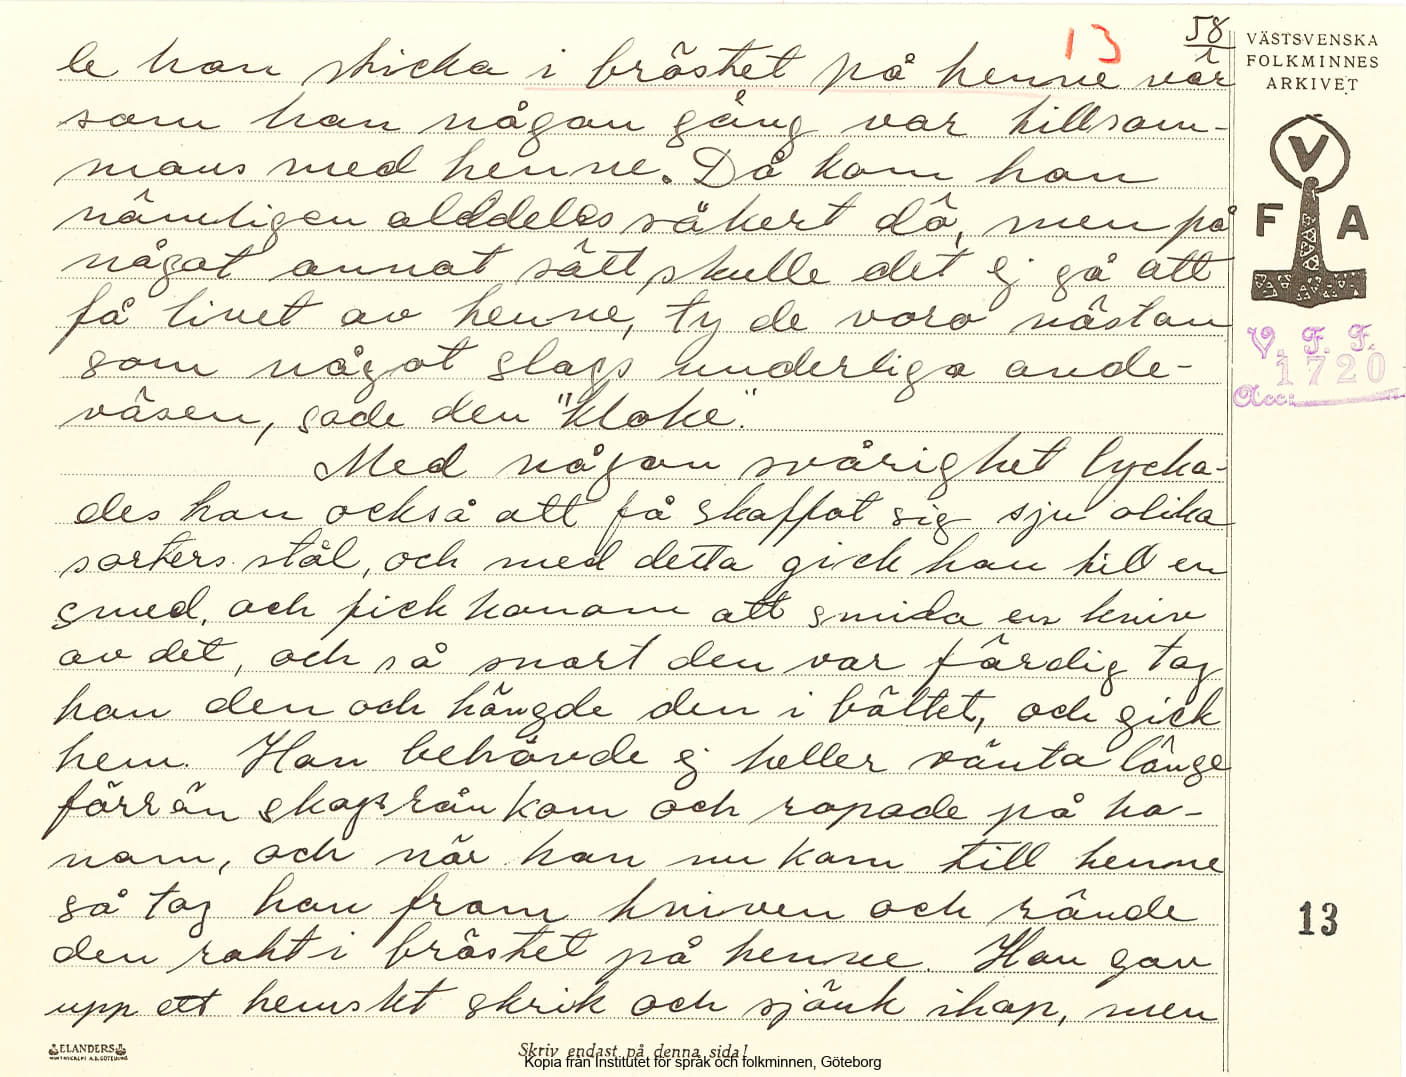 58
13
le han sticka i bröstet på henne när
som han någon gång var tillsom-
mans med henne. Då kom hon
nämligen alldeles säkert dö, men på
något annat sätt skulle det ej gå att
få livet av henne, ty de voro nästan
som något slags underliga ande-
väsen, sade den "kloke".
Med någon svårighet lycka-
des han också att få skaffat sig sju olika
sorters stål, och med detta gick han till en
smed, och fick honom att smida en kniv
av det, och så snart den var färdig tog
han den och hängde den i bältet, och gick
hem. Han behövde ej heller vänta länge
förrän skogsrån kom och ropade på ho-
nom, och när han nu kom till henne
så tog han fram kniven och rände
den rakt i bröstet på henne. Hon gav
upp ett hemskt skrik och sjönk ihop, men
VÄSTSVENSKA
FOLKMINNES
ARKIVET
V
F A
V. F. F.
1720
Acc:
13
ELANDERS
Skriv endast på denna sida!
Kopia från Institutet för språk och folkminnen, Göteborg